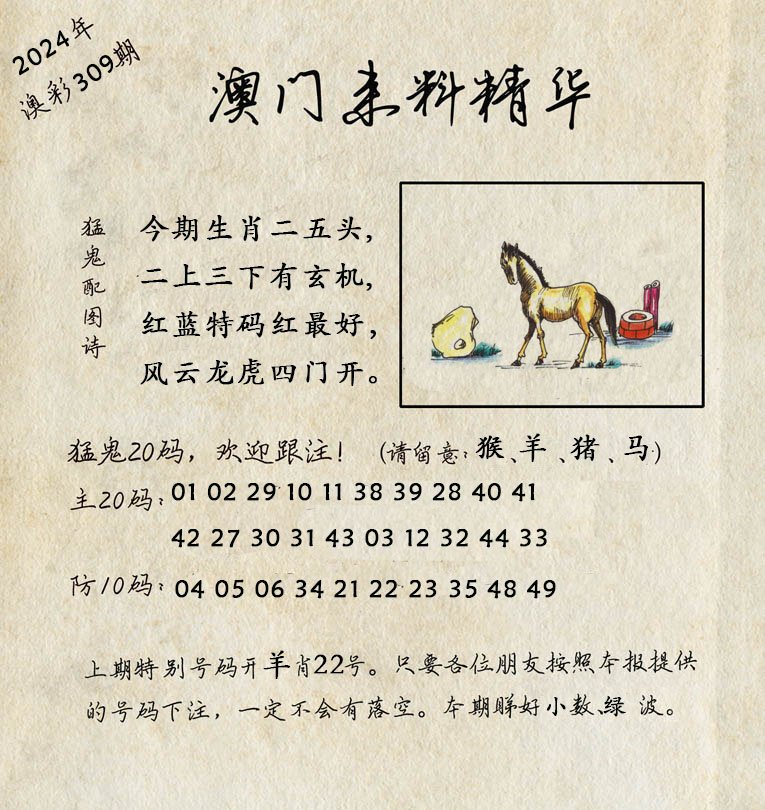 2024年
澳彩309期
澳门来料精华
猛鬼配图诗
今期生肖二五头，
二上三下有玄机，
红蓝特码红最好，
风云龙虎四门开。
猛鬼20码，欢迎跟注！（请留意：猴、羊、猪、马）
主20码：01 02 29 10 11 38 39 28 40 41
42 27 30 31 43 03 12 32 44 33
防10码：04 05 06 34 21 22 23 35 48 49
上期特别号码开羊肖22号。只要各位朋友按照本报提供
的号码下注，一定不会有落空。本期睇好小数、绿 波。